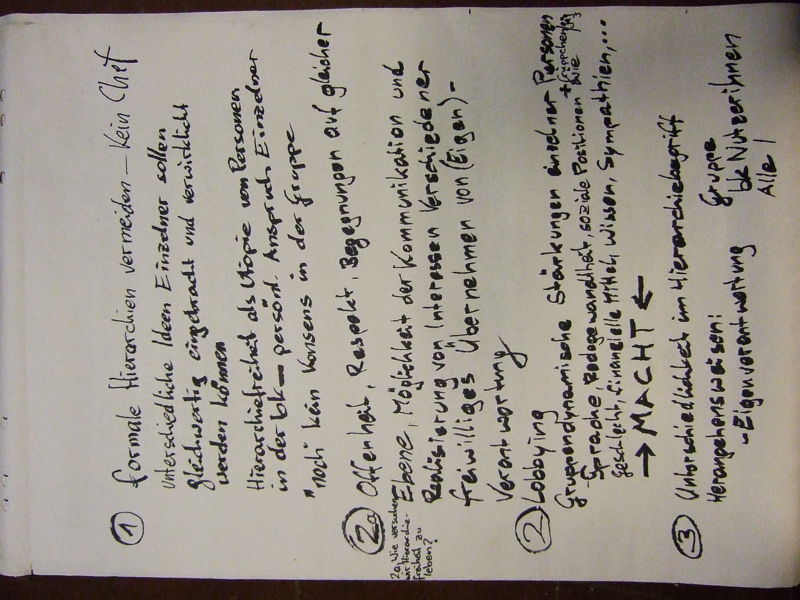 ① formale Hierarchien vermeiden – Kein Chef
Unterschiedliche Ideen Einzelner sollen
gleichwertig eingebracht und verwirklicht
werden können
Hierarchiefreiheit als Utopie von Personen
in der bk – persönl. Anspruch Einzelner
"noch" kein Konsens in der Gruppe
2a Offenheit, Respekt, Begegnungen auf gleicher
Ebene, Möglichkeit der Kommunikation und
Realisierung von Interessen Verschiedener
freiwilliges Übernehmen von (Eigen)-
Verantwortung
2a Wie versuchen
wir Hierarchie-
freiheit zu
leben?
② Lobbying
Gruppendynamische Stärkungen einzelner Personen
+ Grüppchen
- Sprache, Redegewandthät, soziale Positionen wie
Geschlecht, finanzielle Mittel, Wissen, Sympathien,...
→ MACHT ←
③ Unterschiedlichkeit im Hierarchiebegriff
Herangehensweisen: Gruppe
- Eigenverantwortung bk NutzerInnen
Alle!